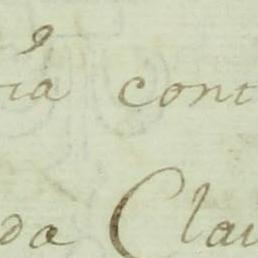 ia cont
da Clau